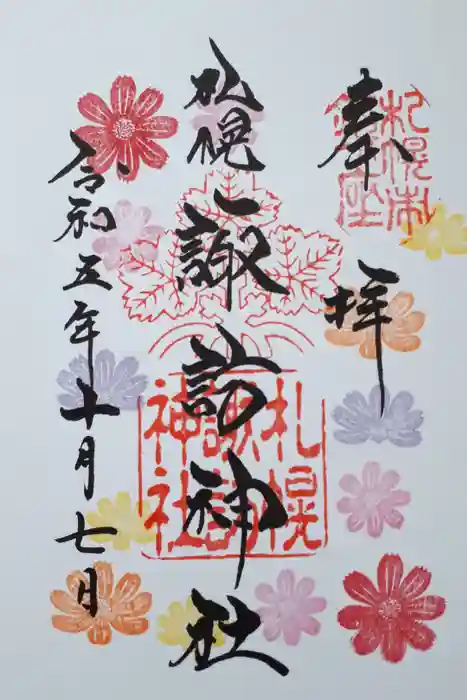 奉拝
札幌市鎮座
札幌
諏訪神社
札幌諏訪神社
令和五年十月七日